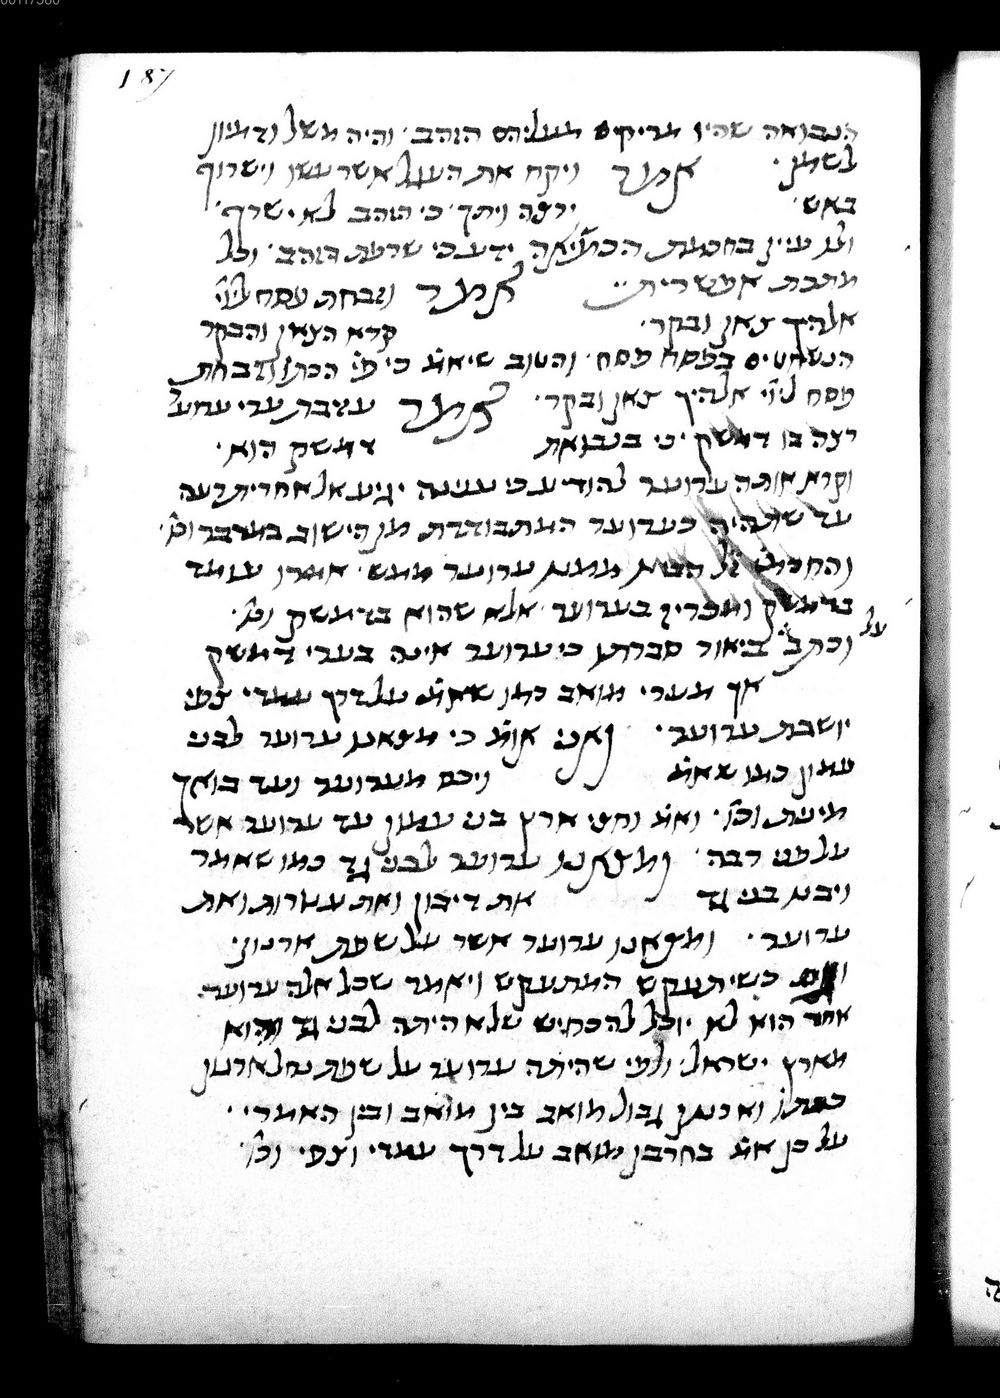 187
הנבואה שהיו מריקים מעליהם הזהב׳ והיה משל ודמיון
לשמן׳ אמר ויקח את העגל אשר עשו וישרוף
באש׳ ירצה ויתך׳ כי הזהב לא ישרף׳
ולנו עיין בחכמת ידע כי שרפת הזהב׳ וכל
מתכת אפשרית׳׳ אמר וזבחת פסח לי״י
אלהיך צאן ובקר׳ קרא הצאן והבקר
הנשחטים בפסח פסח׳ והטוב שיאמ׳ כי פי׳ הכתו׳ וזבחת
פסח לי״י אלהיך צאן ובקר׳ אמר עזובת ערי ערוער
רצה בו דמשק׳ כי בנבואת דמשק הוא׳
וקרא אותה ערוער להודיע כי ענינה יגיע אל אחרית רעה
עד שתהיה כערוער המתבודדת מן הישוב במדבר וכו׳
והחכמי׳ ז״ל ממנו ערוער ממש׳ אמרו עומד
בדמשק ומכריז בערוער׳ אלא שהוא בדמשק וכו׳
על
וכתב ביאור סברתם כי ערוער אינה בערי דמשק
אך מערי מואב כמו שאמ׳ על דרך עמדי וצפי
יושבת ערוער׳ ואני אומ׳ כי מצאנו ערוער לבני
עמון כמו שאמ׳ ויכם מערוער ועד בואך
מינית וכו׳׳ ואמ׳ וחצי ארץ בני עמון עד ערוער אשר
על פני רבה׳ ומצאנו ערוער לבני גד כמו שאמר
ויבנו בני גד את דיבון ואת עטרות ואת
ערוער׳ ומצאנו ערוער אשר על שפת ארנון׳
ואם כשיתעקש המתעקש ויאמר שכל אלה ערוער
אחד הוא לא יוכל להכחיש שלא היתה לבני גד והוא
מארץ ישראל׳ ולפי שהיתה ערוער על שפת נחל ארנון
כמת״ו וארנון גבול מואב בין מואב ובין האמרי׳׳
על כן אמ׳ בחרבן מואב על דרך עמדי וצפי וכו׳